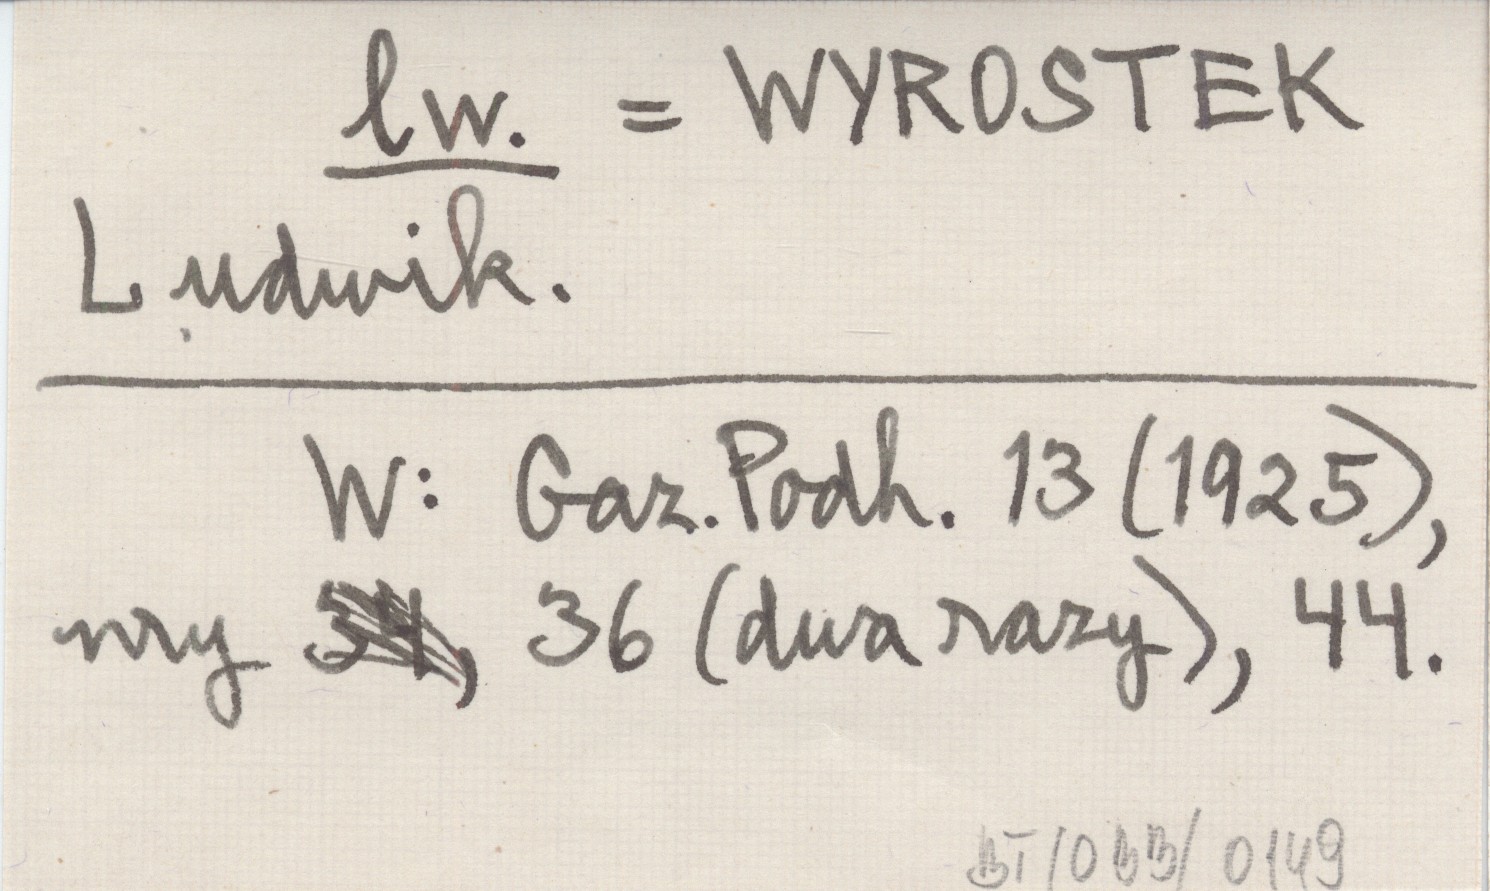 lw. = WYROSTEK
Ludwik.
W: Gaz. Podh. 13 (1925),
nry 36 (dwa razy), 44.
0149